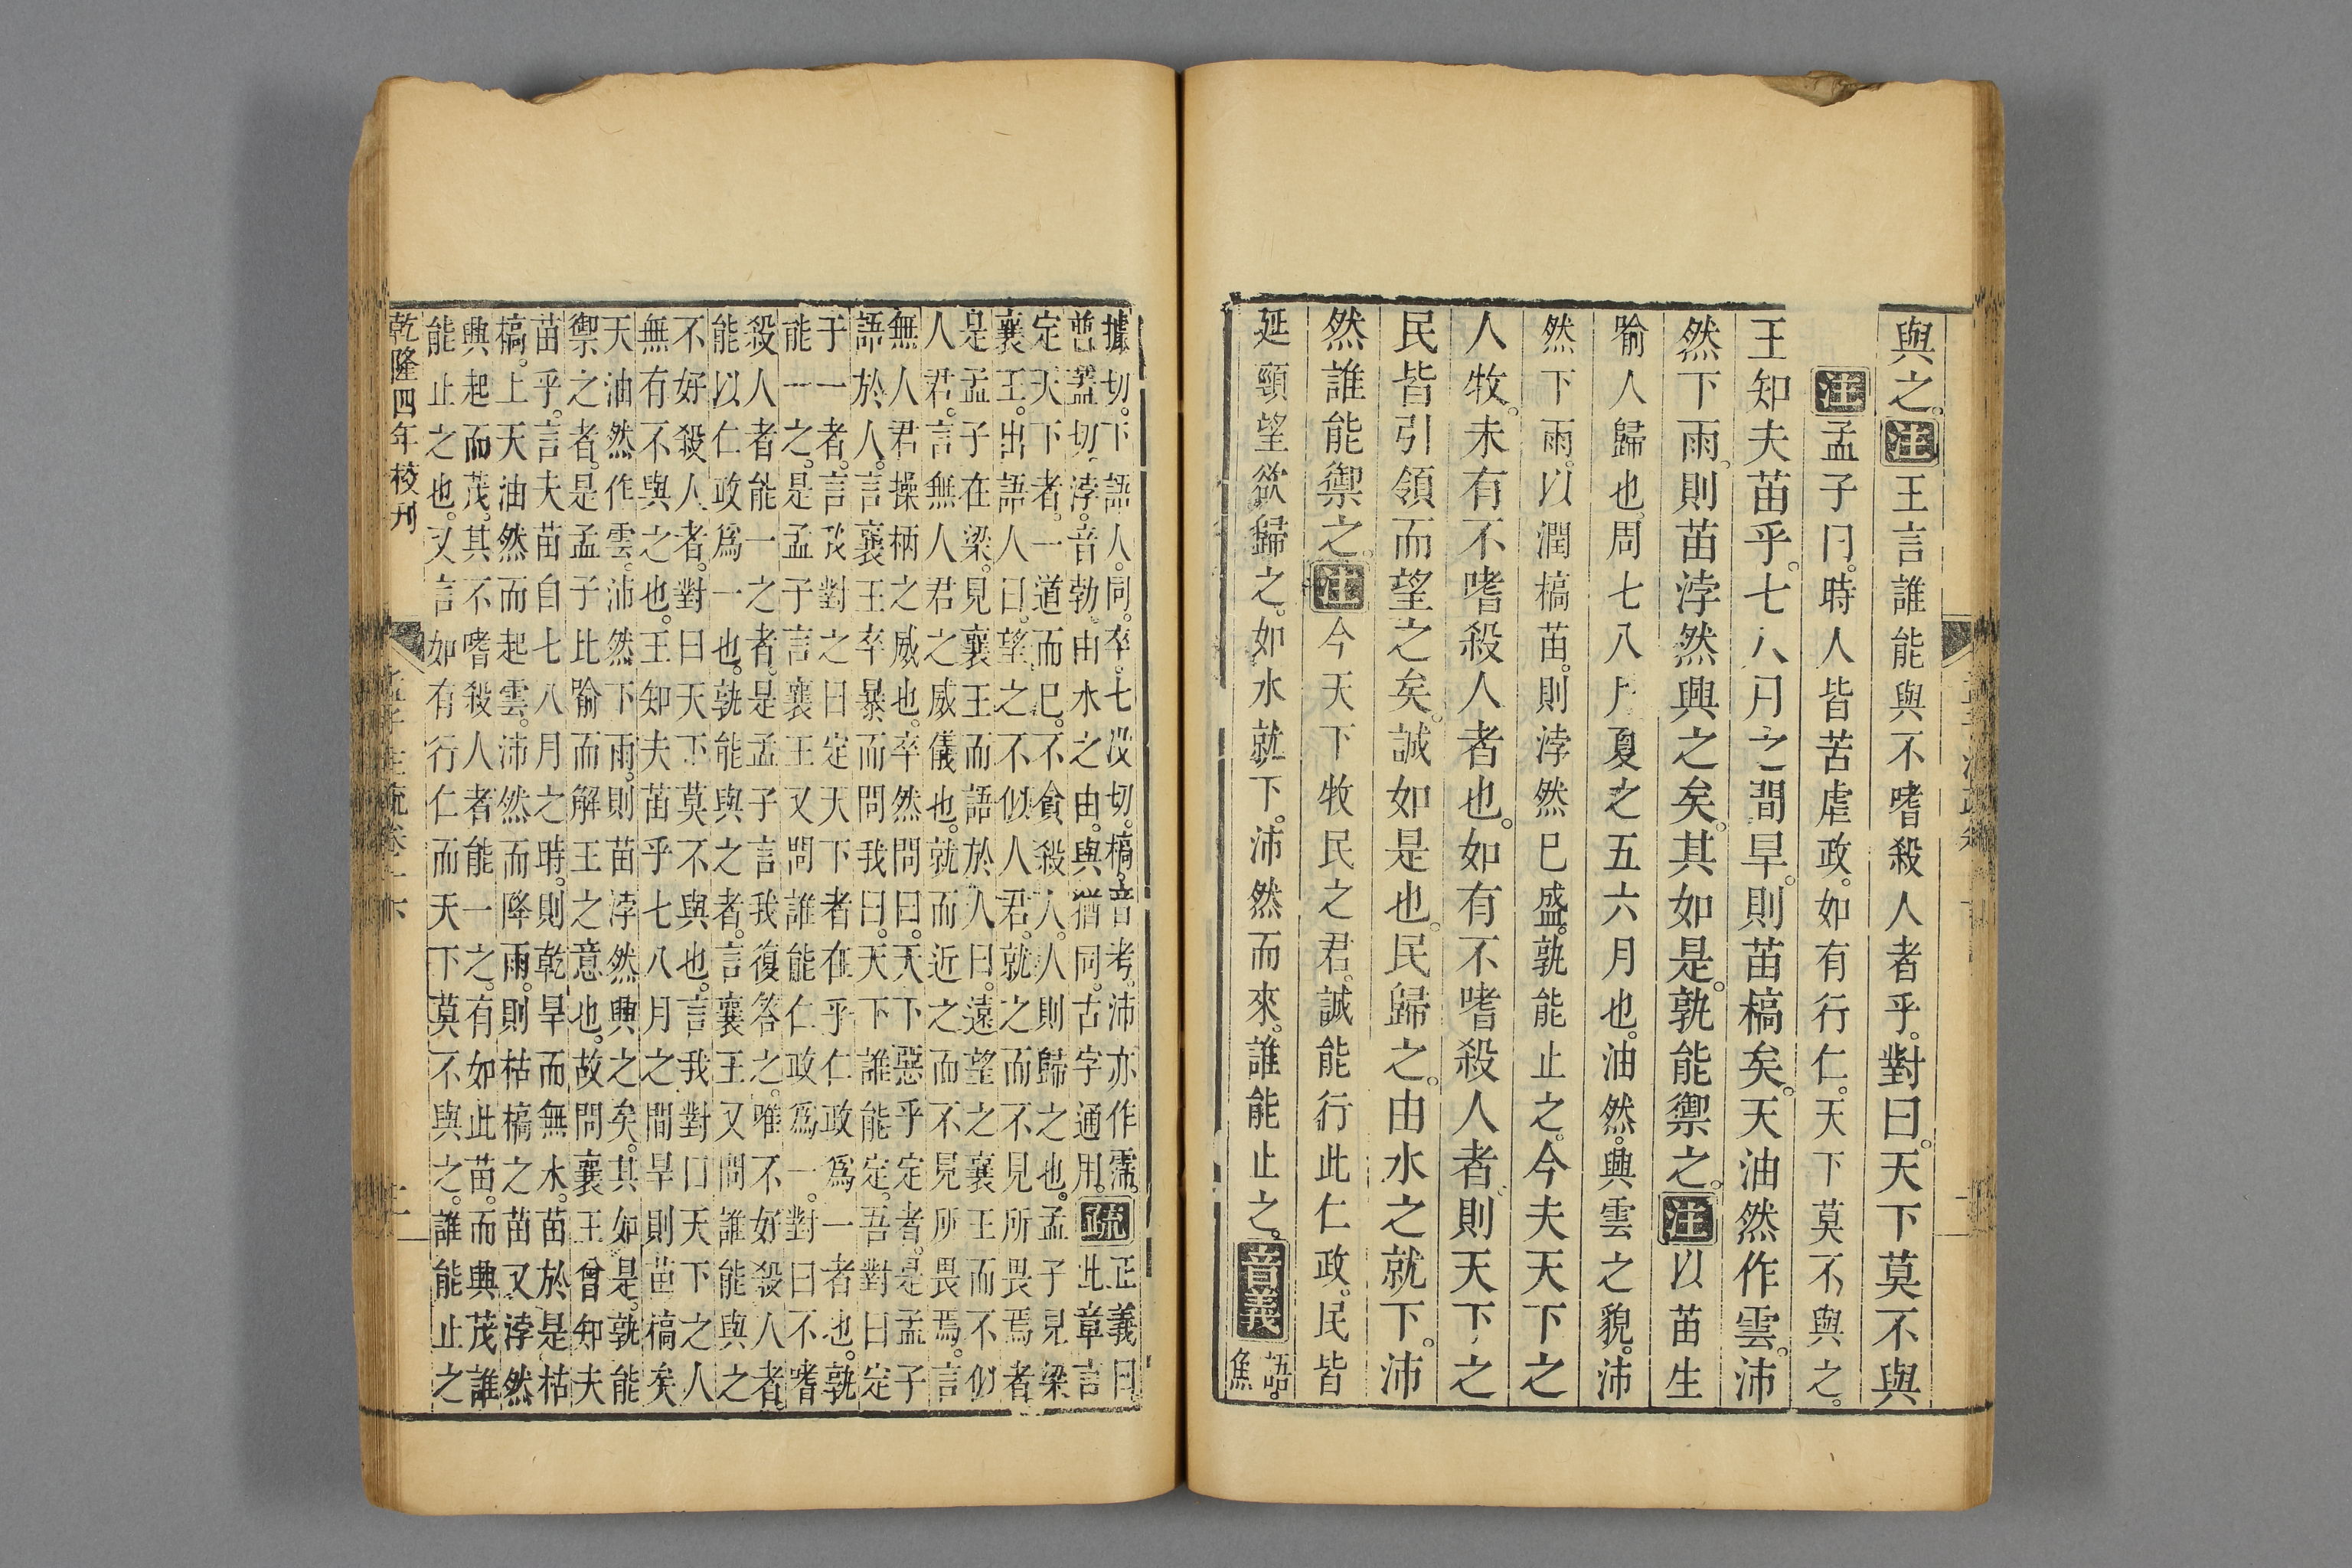 與之。注王言誰能與不嗜殺人者乎。對曰。天下莫不與
注孟子曰。時人皆苦虐政。如有行仁。天下莫不與之。
王知夫苗乎。七八月之間旱。則苗槁矣。天油然作雲。沛
然下雨。則苗浡然興之矣。其如是。孰能禦之。注以苗生
喻人歸也。周七八月夏之五六月也。油然。興雲之貌。沛
然下雨。以潤槁苗。則浡然已盛。孰能止之。今夫天下之
人牧。未有不嗜殺人者也。如有不嗜殺人者。則天下之
民皆引領而望之矣。誠如是也。民歸之。由水之就下。沛
然誰能禦之。注今天下牧民之君。誠能行此仁政。民皆
延頸望欲歸之。如水就下。沛然而來。誰能止之。音義語。魚
據切。下語人。同。卒。七沒切。槁。音考。沛亦作霈。
普蓋切。浡。音勃。由水之由。與猶同。古字通用。疏正義曰。
此章言
定天下者。一道而已。不貪殺人。人則歸之也。孟子見梁
襄王。出語人曰。望之不似人君。就之而不見所畏焉者。
是孟子在梁。見襄王而語於人曰。遠望之襄王而不似
人君。言無人君之威儀也。就而近之而不見所畏焉。言
無人君操柄之威也。卒然問曰。天下惡乎定者。是孟子
語於人。言襄王卒暴而問我曰。天下誰能定。吾對曰定
于一者。言我對之曰定天下者在乎仁政爲一者也。孰
能一之。是孟子言襄王又問誰能仁政爲一。對曰不嗜
殺人者能一之者。是孟子言我復答之。唯不好殺人者。
能以仁政爲一也。孰能與之者。言襄王又問誰能與之
不好殺人者。對曰天下莫不與也。言我對曰天下之人
無有不與之也。王知夫苗乎七八月之間旱則苗槁矣
天油然作雲。沛然下雨。則苗浡然興之矣。其如是。孰能
禦之者。是孟子比喻而解王之意也。故問襄王曾知夫
苗乎。言夫苗自七八月之時。則乾旱而無水。苗於是枯
槁。上天油然而起雲。沛然而降雨。則枯槁之苗又浡然
興起而茂。其不嗜殺人者能一之。有如此苗。而興茂誰
能止之也。又言如有行仁而天下莫不與之。誰能止之
乾隆四年校刊
孟子注疏卷一下